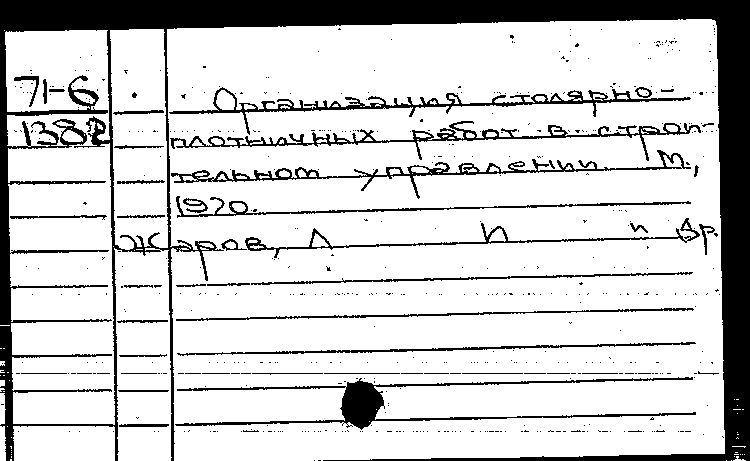 71-6
1382
Организация столярно-
плотничных работ в строи-
тельном управлении М.,
1970.
Жаров, Л П и др.